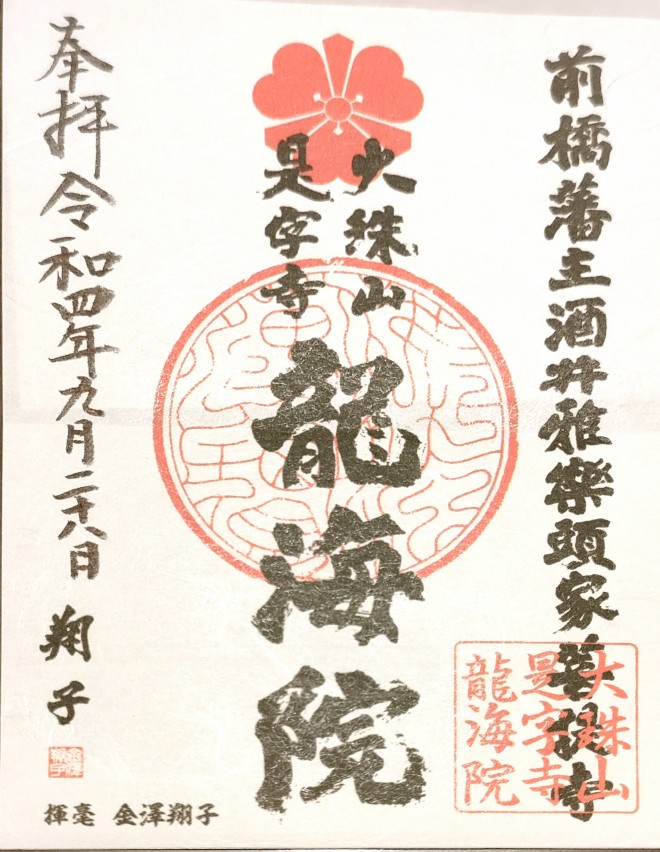 前橋藩主酒井雅樂頭家菩提寺
大珠山
是字寺
龍海院
奉拝 令和四年九月二十八日 翔子
揮毫 金澤翔子
大珠山
是字寺
龍海院